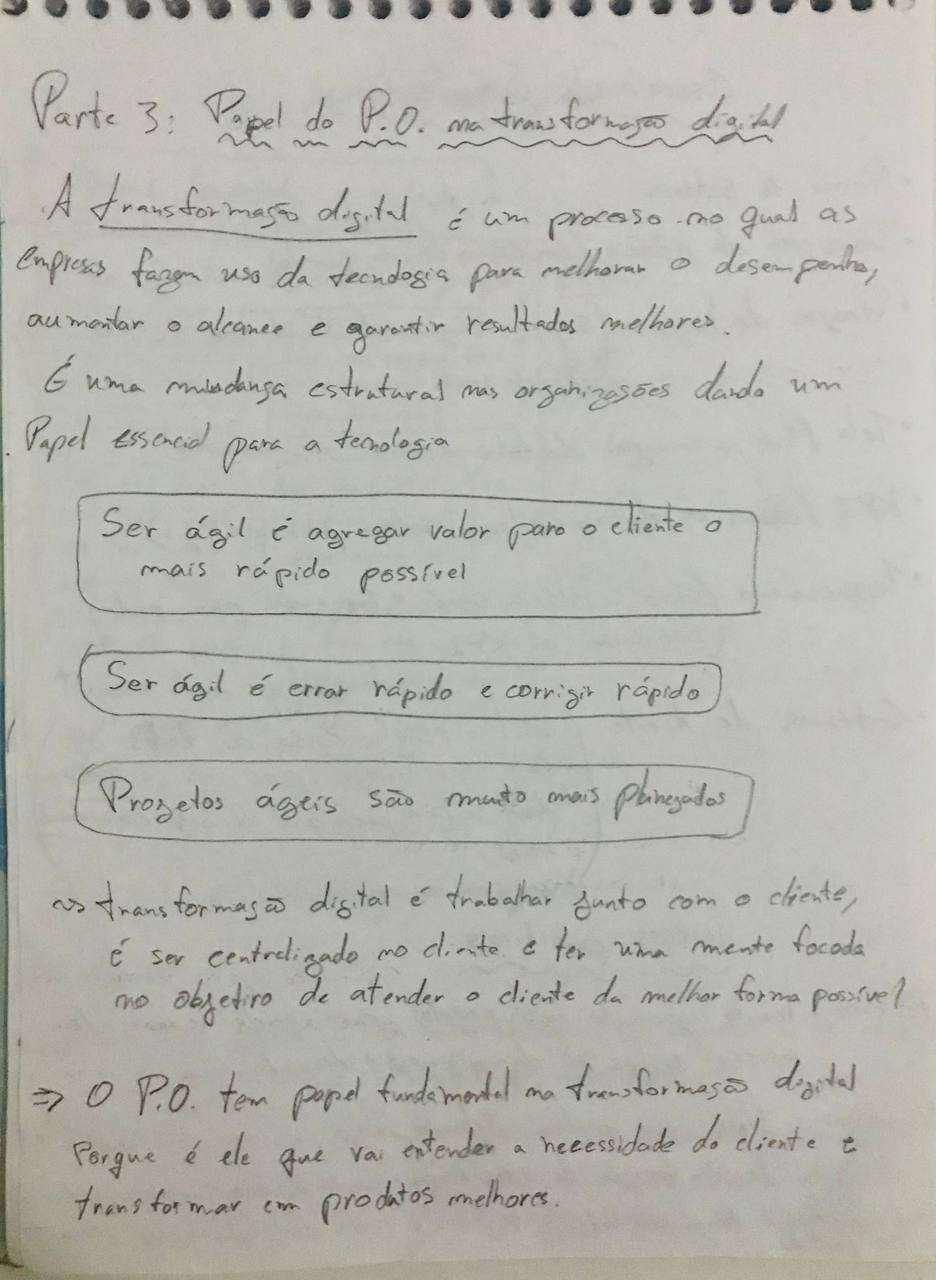 Parte 3: Papel do P.O. na transformação digital
A transformação digital é um processo no qual as
empresas fazem uso da tecnologia para melhorar o desempenho,
aumentar o alcance e garantir resultados melhores.
É uma mudança estrutural nas organizações dando um
Papel essencial para a tecnologia
Ser ágil é agregar valor para o cliente o
mais rápido possível
Ser ágil é errar rápido e corrigir rápido
Projetos ágeis são muito mais planejados
~> transformação digital é trabalhar junto com o cliente,
é ser centralizado no cliente e ter uma mente focada
no objetivo de atender o cliente da melhor forma possível
⇒ O P.O. tem papel fundamental na transformação digital
Porque é ele que vai entender a necessidade do cliente e
transformar em produtos melhores.